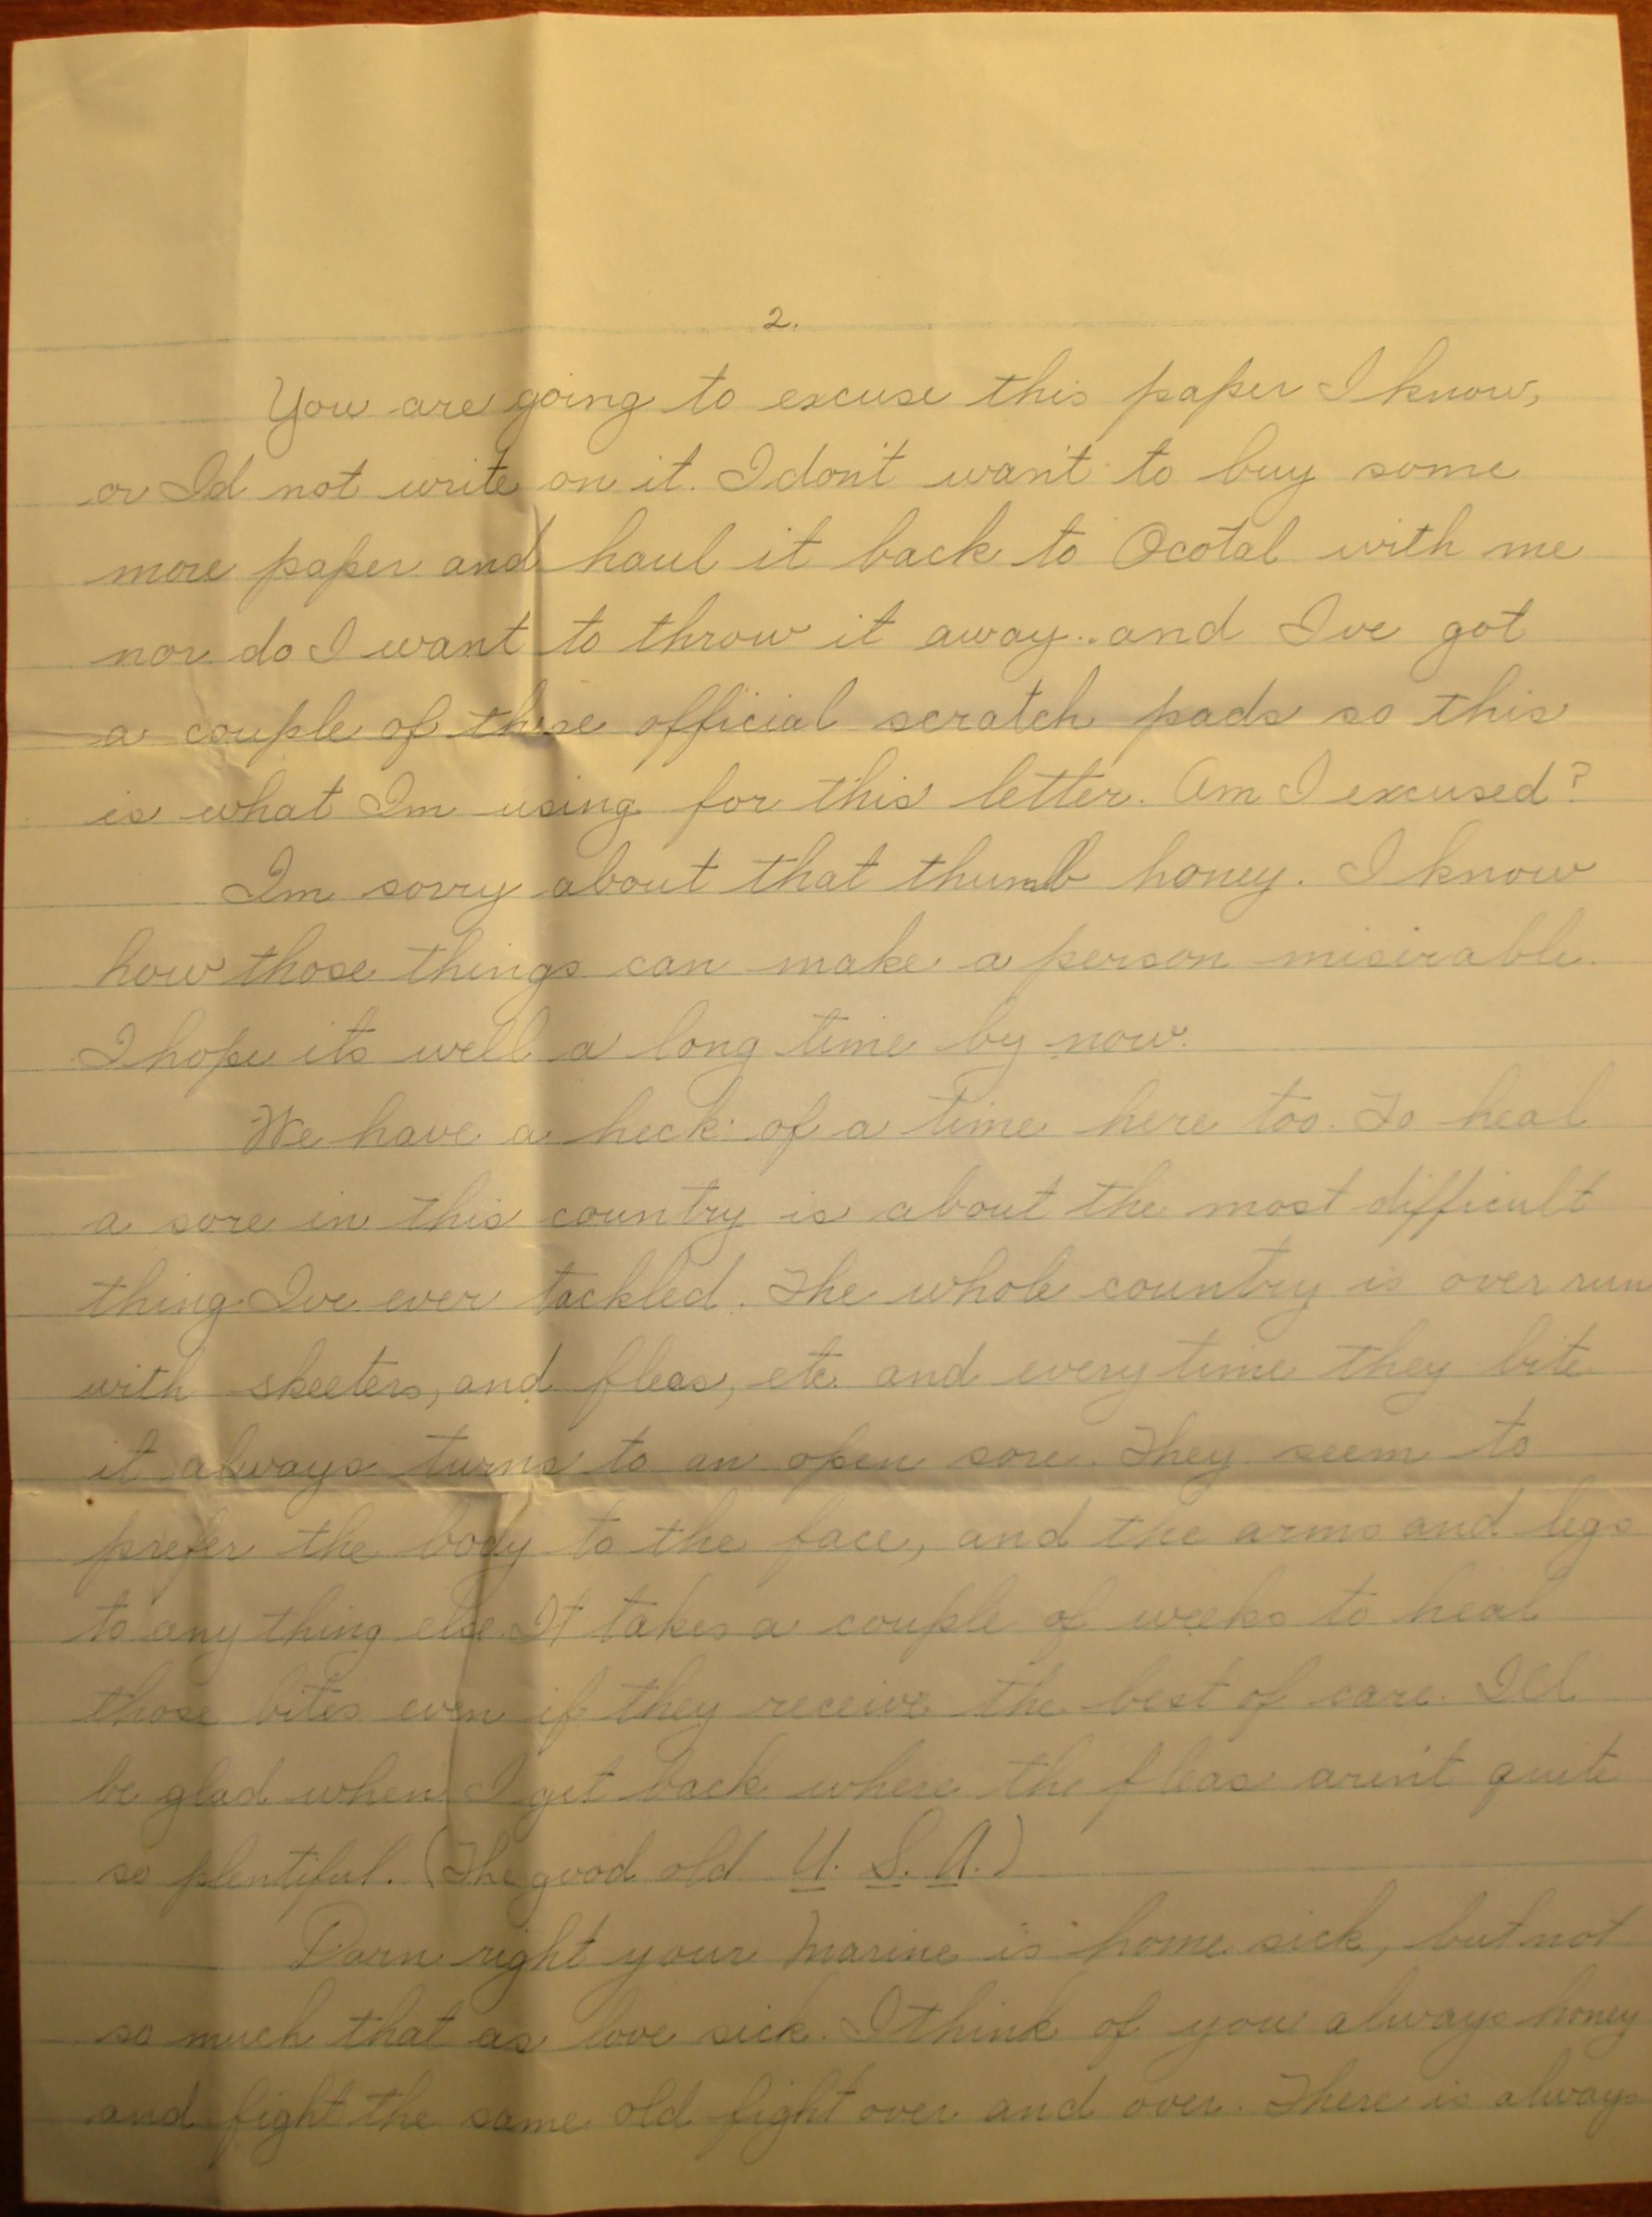 2.
You are going to excuse this paper I know,
or Id not write on it. I don't want to buy some
more paper and haul it back to Ocotal with me
nor do I want to throw it away.. and Ive got
a couple of these official scratch pads so this
is what Im using for this letter. Am I excused?
Im sorry about that thumb honey. I know
how those things can make a person misirable.
I hope its well a long time by now.
We have a heck of a time here too. To heal
a sore in this country is about the most difficult
thing Ive ever tackled. The whole country is over run
with skeeters, and fleas, etc. and every time they bite
it always turns to an open sore. They seem to
prefer the body to the face, and the arms and legs
to any thing else. It takes a couple of weeks to heal
those bites even if they receive the best of care. Ill
be glad when I get back where the fleas aren't quite
so plentiful. (The good old U. S. A.)
Darn right your Marine is home sick, but not
so much that as love sick. I think of you always honey
and fight the same old fight over and over. There is always